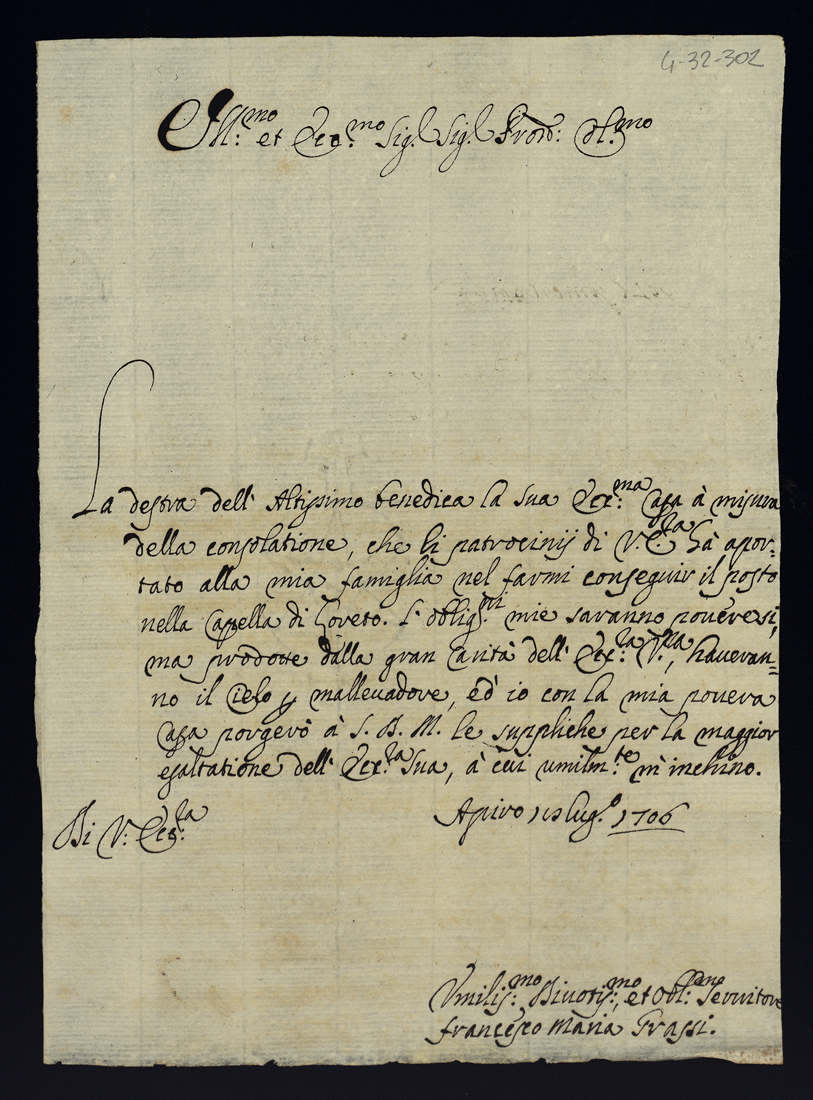 4-32-302
Ill:mo et Ecc:mo Sig.r Sig.r Pron: Col:mo
La destra dell' Altissimo benedica la sua Ecc:ma Casa à misura
della consolatione, che li patrocinij di V. Ecc:za hà apor=
tato alla mia famiglia nel farmi conseguir il posto
nella Capella di Loreto. L' oblig:ni mie saranno povere sì,
ma prodotte dalla gran carità dell' Ecc:za V:ra, haveran=
no il Cielo p mallevadore, ed io con la mia povera
Casa porgerò à S. D. M. le suppliche per la maggior
esaltatione dell' Ecc:za Sua, à cui umilm:te m' inchino.
Di V: Ecc:za
Apiro Lug.o 1706
Umiliss:mo Divotiss:mo, et Obl:mo Servitore
Francesco Maria Grassi.